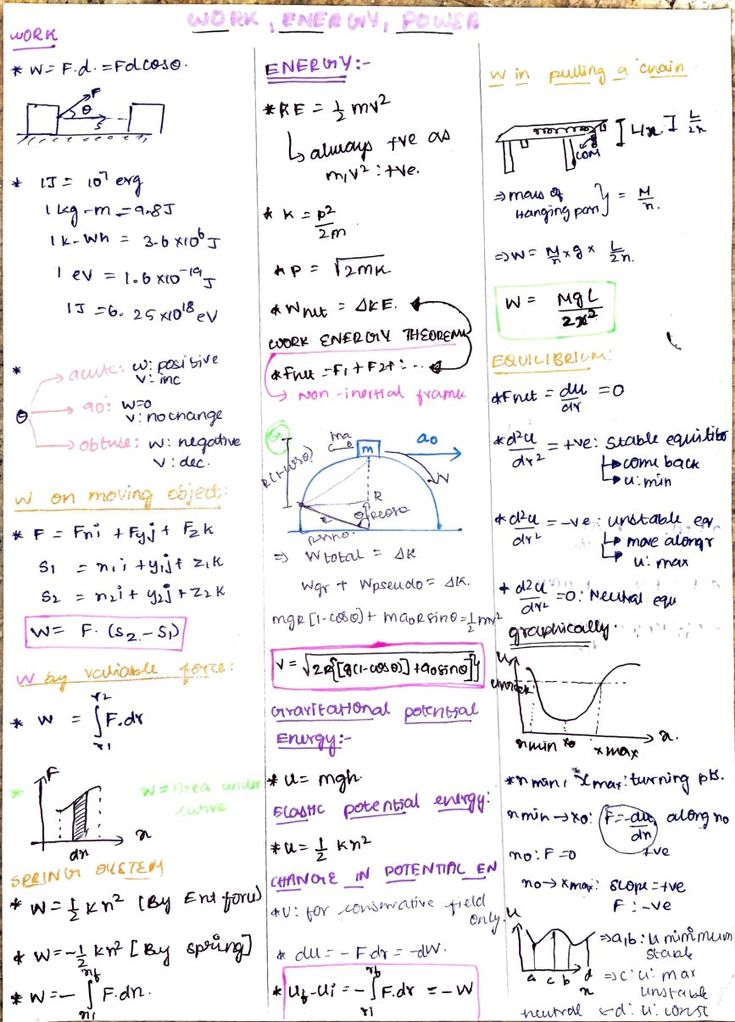 WORK, ENERGY, POWER
WORK
* W = F.d. = Fdcosθ.
F
θ
s
* 1J = 10⁷ erg
1 kg-m = 9.8J
1 k-wh = 3.6 x10⁶ J
1 eV = 1.6 x10⁻¹⁹ J
1J = 6.25 x10¹⁸ eV
*
θ
acute: w: positive
v: inc
90: w=0
v: no change
obtuse: w: negative
v: dec.
W on moving object:
* F = Fxi + Fyj + Fzk
S1 = x1i + y1j + z1k
S2 = x2i + y2j + z2k
W = F. (S2 - S1)
W by variable force:
* W = ∫ F.dr
r2
r1
*
F
W = Area under curve
x
dx
SPRING SYSTEM
* W = ½ Kx² [By Ext force]
* W = -½ Kx² [By spring]
* W = - ∫ F.dx.
xf
x1
ENERGY:-
* KE = ½ mv²
always +ve as
m, v² : +ve.
* K = p²/2m
* P = √2mK
* Wnet = ΔKE.
WORK ENERGY THEOREM
* Fnet = F1 + F2+ ...
Non-inertial frame
ma
m
a0
R(1-cosθ)
R
θ
Rcosθ
Rsinθ
⇒ Wtotal = ΔK
Wgr + Wpseudo = ΔK.
mgR[1-cosθ] + ma0Rsinθ = ½mv²
V = √2R{[g(1-cosθ)] + a0sinθ]}
Gravitational potential
Energy:-
* U = mgh.
Elastic potential energy:
* U = ½ Kx²
CHANGE IN POTENTIAL EN
* U: for conservative field only.
* dU = -Fdr = -dW.
* Uf - Ui = - ∫ F.dr = -W
rf
r1
W in pulling a chain
COM
L/n
L/2n
⇒ mass of
Hanging part } = M/n.
⇒ W = M/n x g x L/2n.
W = MgL/2x²
EQUILIBRIUM:
* Fnet = du/dr = 0
* d²u/dr² = +ve: Stable equilibr
come back
u: min
* d²u/dr² = -ve: unstable eq
move along r
u: max
* d²u/dr² = 0: Neutral equ
graphically
u
x.
xmin x0 xmax
* xmin, xmax: turning pts.
xmin → x0: F = -du/dx along x0
+ve
x0: F = 0
x0 → xmax: slope = +ve
F: -ve
u
a c b d
x
⇒ a, b: U minimum
stable
⇒ c: u: max
unstable
neutral ← d: u: const